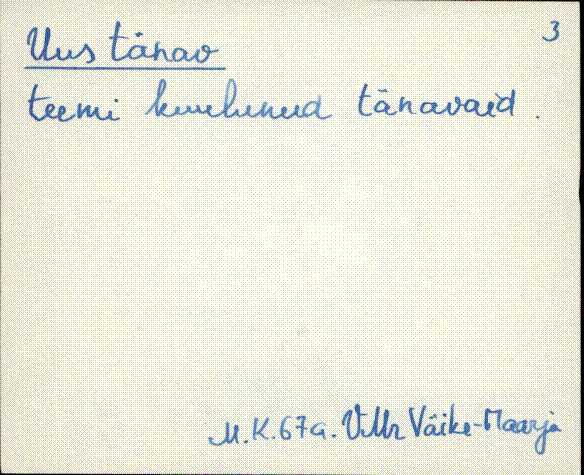 3
Uus tänav
teemi kuulunud tänavaid.
M.K. 67a. VMr Väike-Maarja